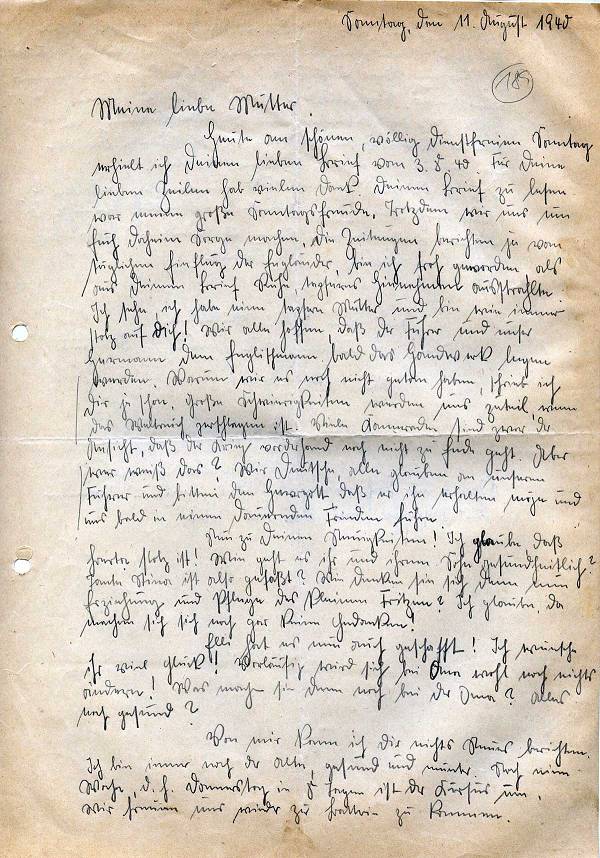 Sonntag, den 11. August 1940
189
Meine liebe Mutter.
Heute am schönen, völlig dienstfreien Sonntag
erhielt ich Deinen lieben Brief vom 3.8.40. Für Deine
lieben Zeilen hab vielen Dank. Deinen Brief zu lesen
war meine große Sonntagsfreude. Trotzdem wir uns um
Euch daheim Sorge machen, die Zeitungen berichten ja vom
täglichen Einflug der Engländer, bin ich froh geworden als
aus Deinem Brief Ruhe tapferes ausstrahlte.
Ich sehe, ich habe eine tapfere Mutter und bin wie immer
stolz auf Dich! Wir alle hoffen, daß der Führer und unser
Hermann dem Engländer bald das Handwerk legen
werden. Warum wir es noch nicht getan haben, schrieb ich
Dir ja schon. Große Schwierigkeiten werden uns zuteil, wenn
das Weltreich zerschlagen ist. Viele Kameraden sind zwar der
Ansicht, daß der Krieg vorderhand noch nicht zu Ende geht. Aber
wer weiß das? Wir Deutsche alle glauben an unseren
Führer und bitten den Herrgott daß er ihn erhalten möge und
uns bald in einen dauernden Frieden führe.
Nun zu Deinen Neuigkeiten! Ich glaube daß
stolz ist! Wie geht es ihr und ihrem Sohn gesundheitlich?
Tante Stina ist also gefaßt? Wie denken sie sich denn nun
Erziehung und Pflege des kleinen Fritzen? Ich glaube, da
machen sich noch gar keine Gedanken!
Elli hat es nun auch geschafft! Ich wünsche
ihr viel Glück! Vorläufig wird sich bei Oma wohl noch nichts
ändern! Was machen sie denn noch bei der Oma? Alles
noch gesund?
Von mir kann ich Dir nichts Neues berichten.
Ich bin immer noch der alte, gesund und munter. Noch eine
Woche, d.h. Donnerstag in 8 Tagen ist der Kursus um.
Wir freuen uns wieder zur Batterie zu kommen.